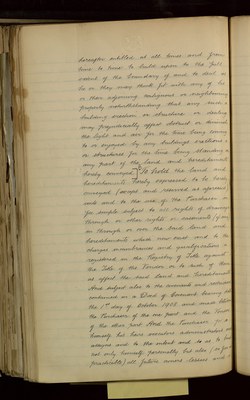 thereafter entitled at all times and from
time to time to build upon to the full
extent of the boundary of and to deal as
he or they may think fit with any of his
or their adjoining contiguous or neighbouring
property notwithstanding that any such
building erection or structure or dealing
may prejudicially affect obstruct or diminish
the light and air for the time being coming
to or enjoyed by any buildings erections
or structures for the time being standing on
any part of the land and hereditaments
hereby conveyed To hold the land and
hereditaments hereby expressed to be hereby
conveyed (except and reserved as aforesaid)
unto and to the use of the Purchaser in
fee simple subject to all rights of drainage
through or other rights or easements (if any)
in through or over the said land and
hereditaments which now exist and to the
charges incumbrances and qualifications
registered in the Registry of Title against
the Title of the Vendor to such of them
as affect the said land and hereditaments
And subject also to the covenants and
contained in a Deed of Covenant bearing
the 1st day of October made
the Purchaser of the one part and the Vendor
of the other part And the Purchaser for
himself his heirs executors administrators and
assigns and to the intent and so as to bind
not only himself personally but also (as far as
practicable) all future owners lessees and